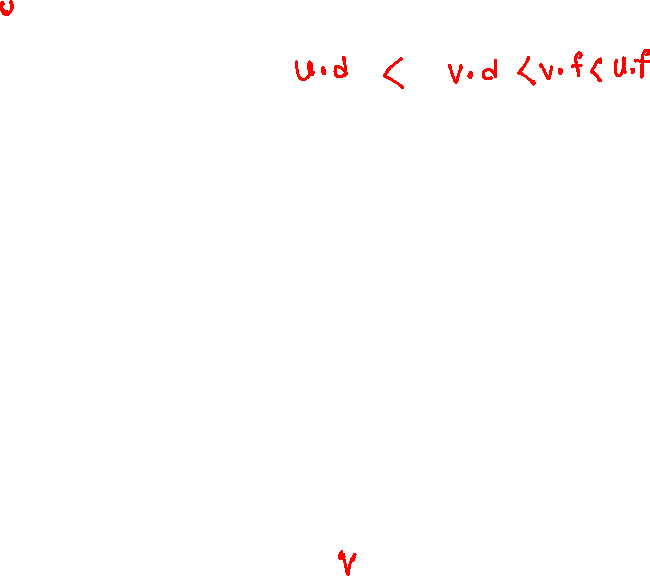 u
u.d < v.d < v.f < u.f
v